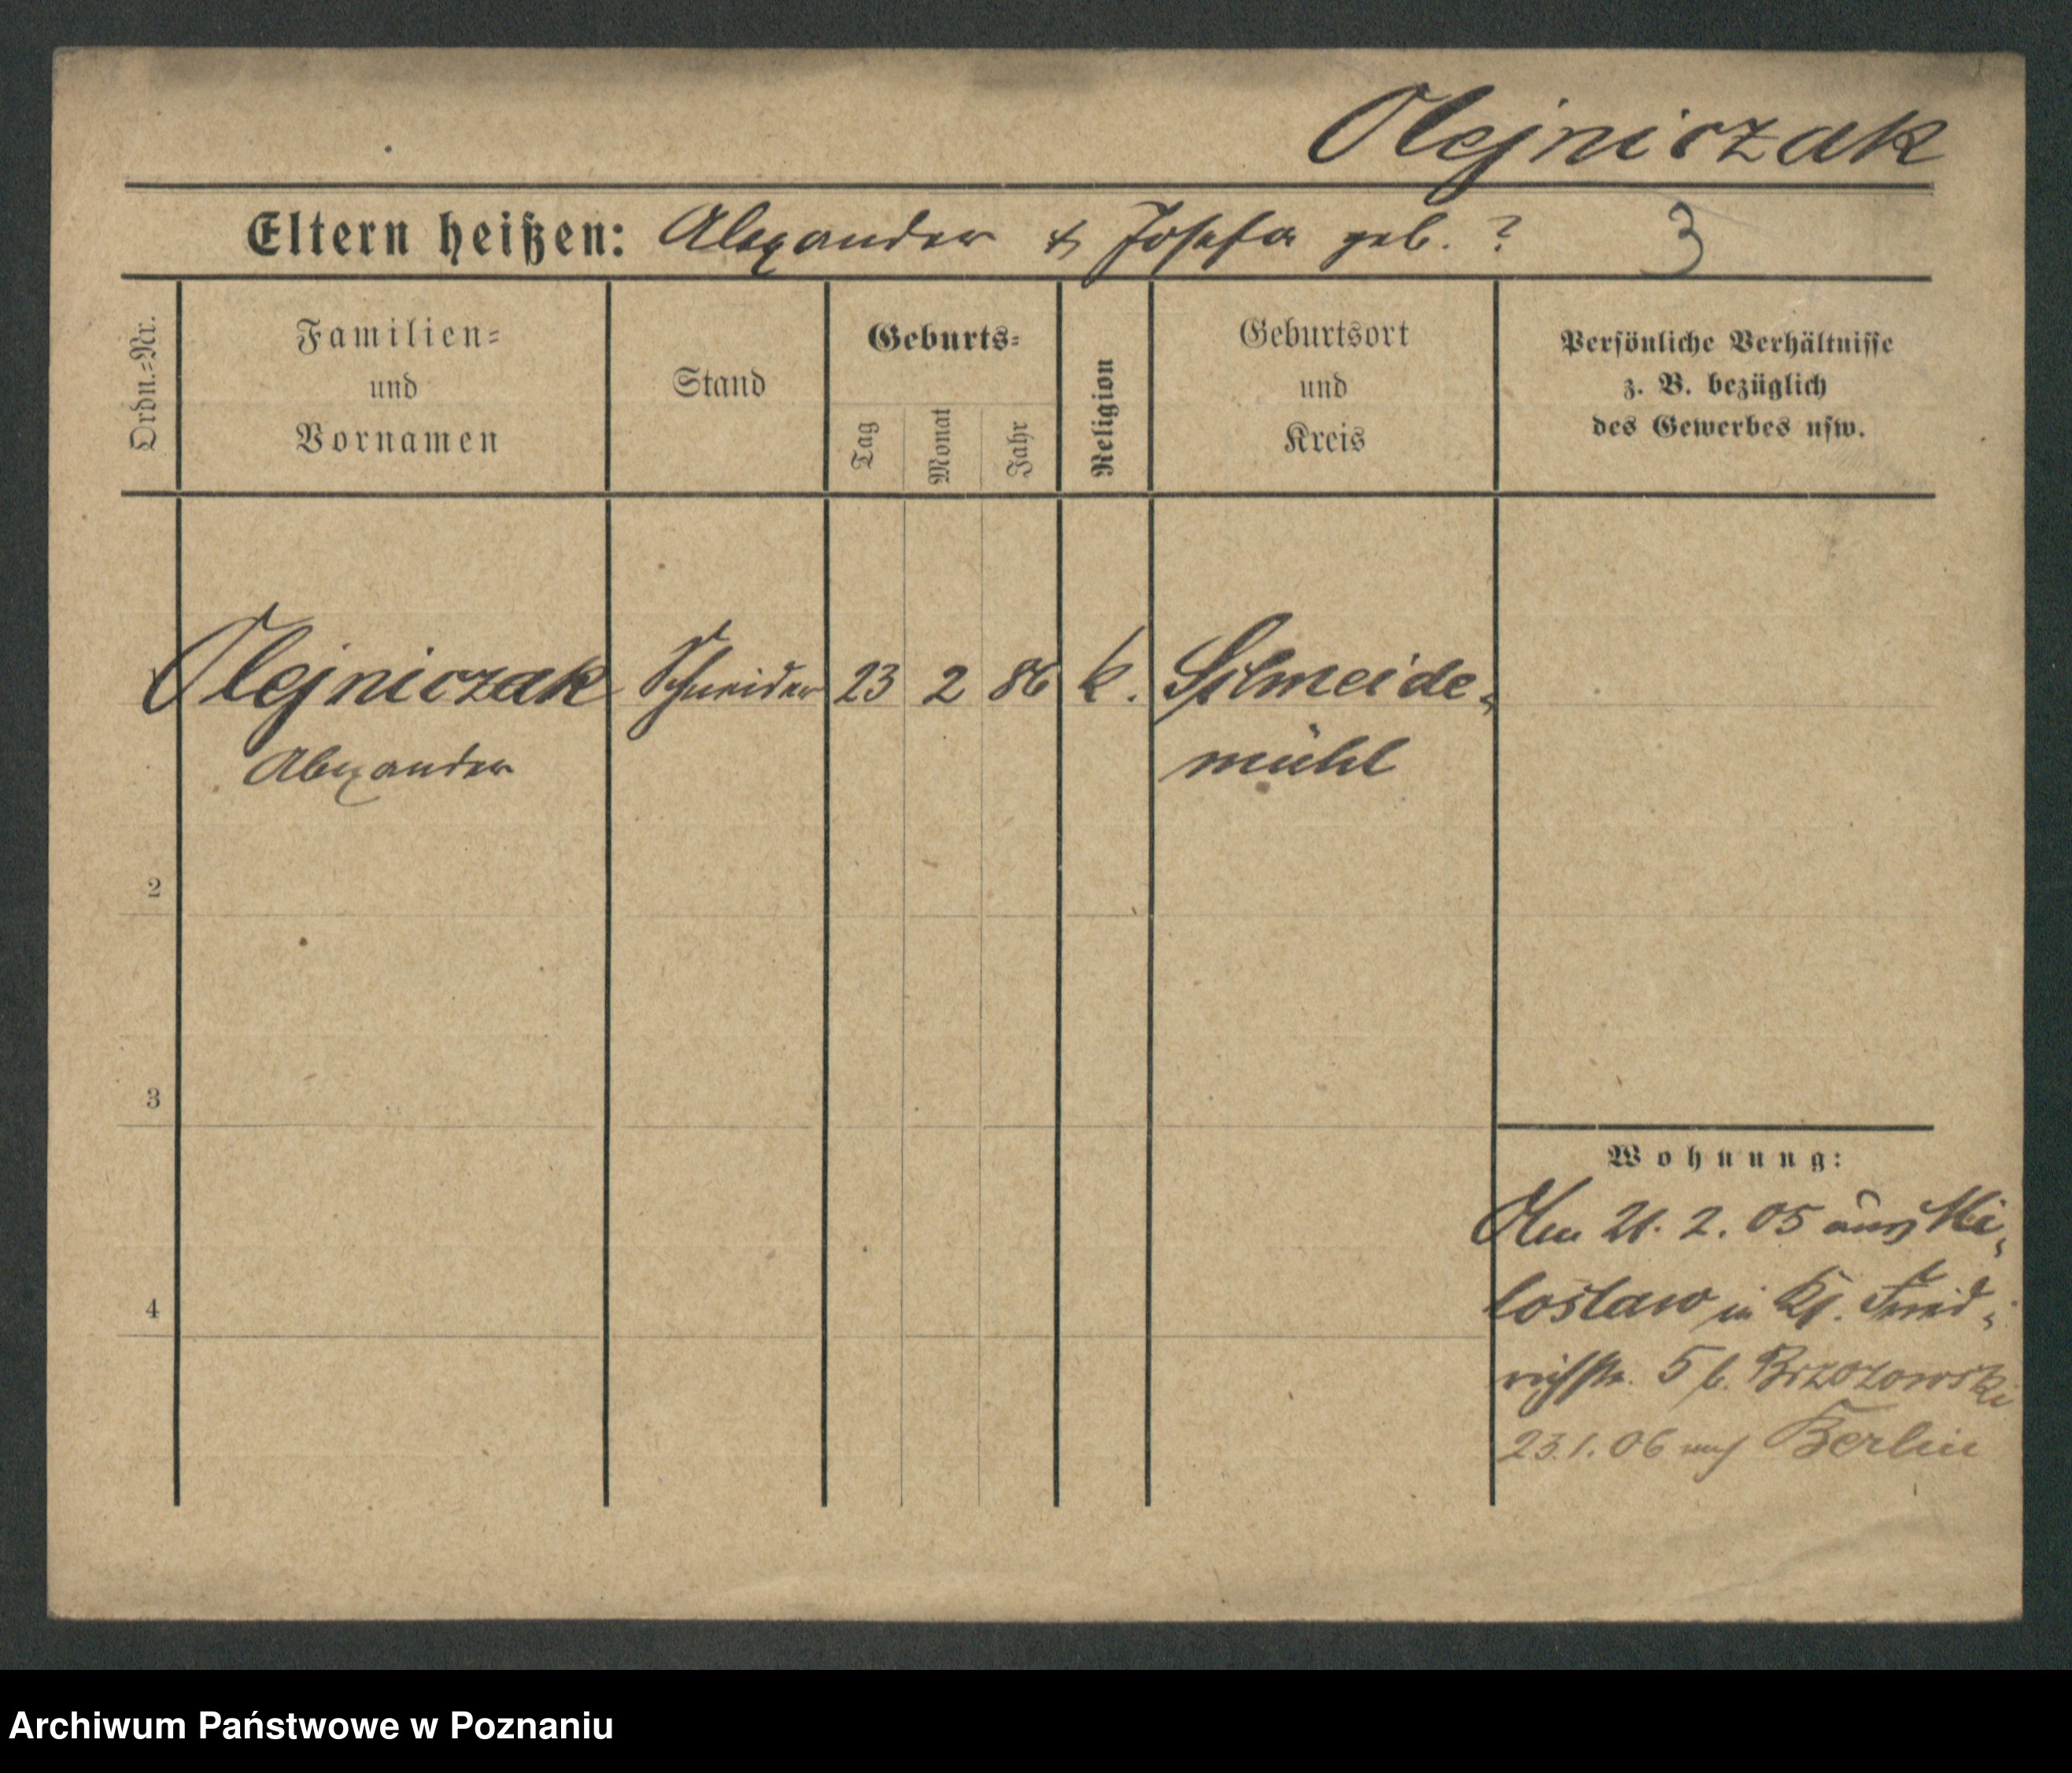 Olejniczak
Eltern heißen: Alexander & Josefa geb. ? 3
Ordn.-Nr.
Familien-
und
Vornamen
Stand
Geburts-
Tag
Monat
Jahr
Religion
Geburtsort
und
Kreis
Persönliche Verhältnisse
z. B. bezüglich
des Gewerbes usw.
Olejniczak Schneider 23 2 86 k. Schneide-
Alexander mühl
2
3
4
Wohnung:
21. 2. 05 aus Mi-
loslaw in Kl. Fried-
richstr. 5 b. Brzozowski
23.1.06 nach Berlin
Archiwum Państwowe w Poznaniu